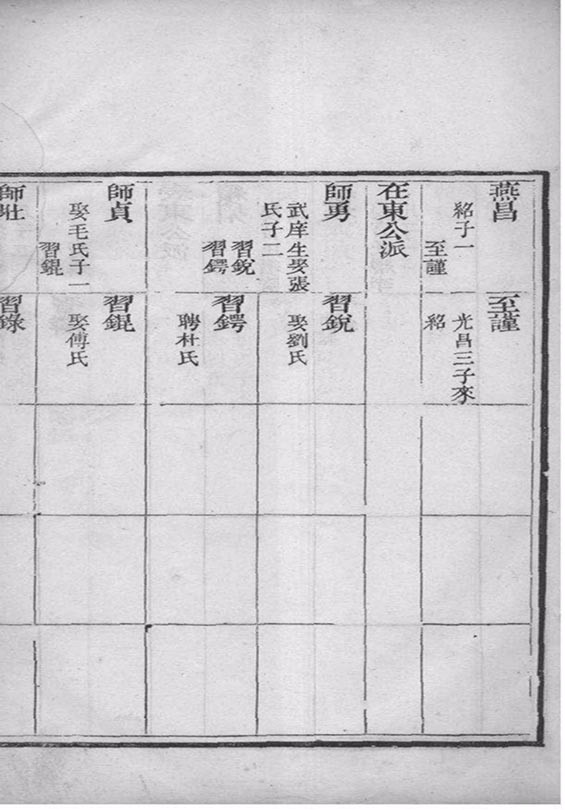 燕昌
紹子一
至謹
在東公派
師勇
武庠生娶張
氏子二
習銳
習鍔
師貞
娶毛氏子一
習錕
師壯
至謹
光昌三子來
紹
習銳
娶劉氏
習鍔
聘杜氏
習錕
娶傅氏
習錄